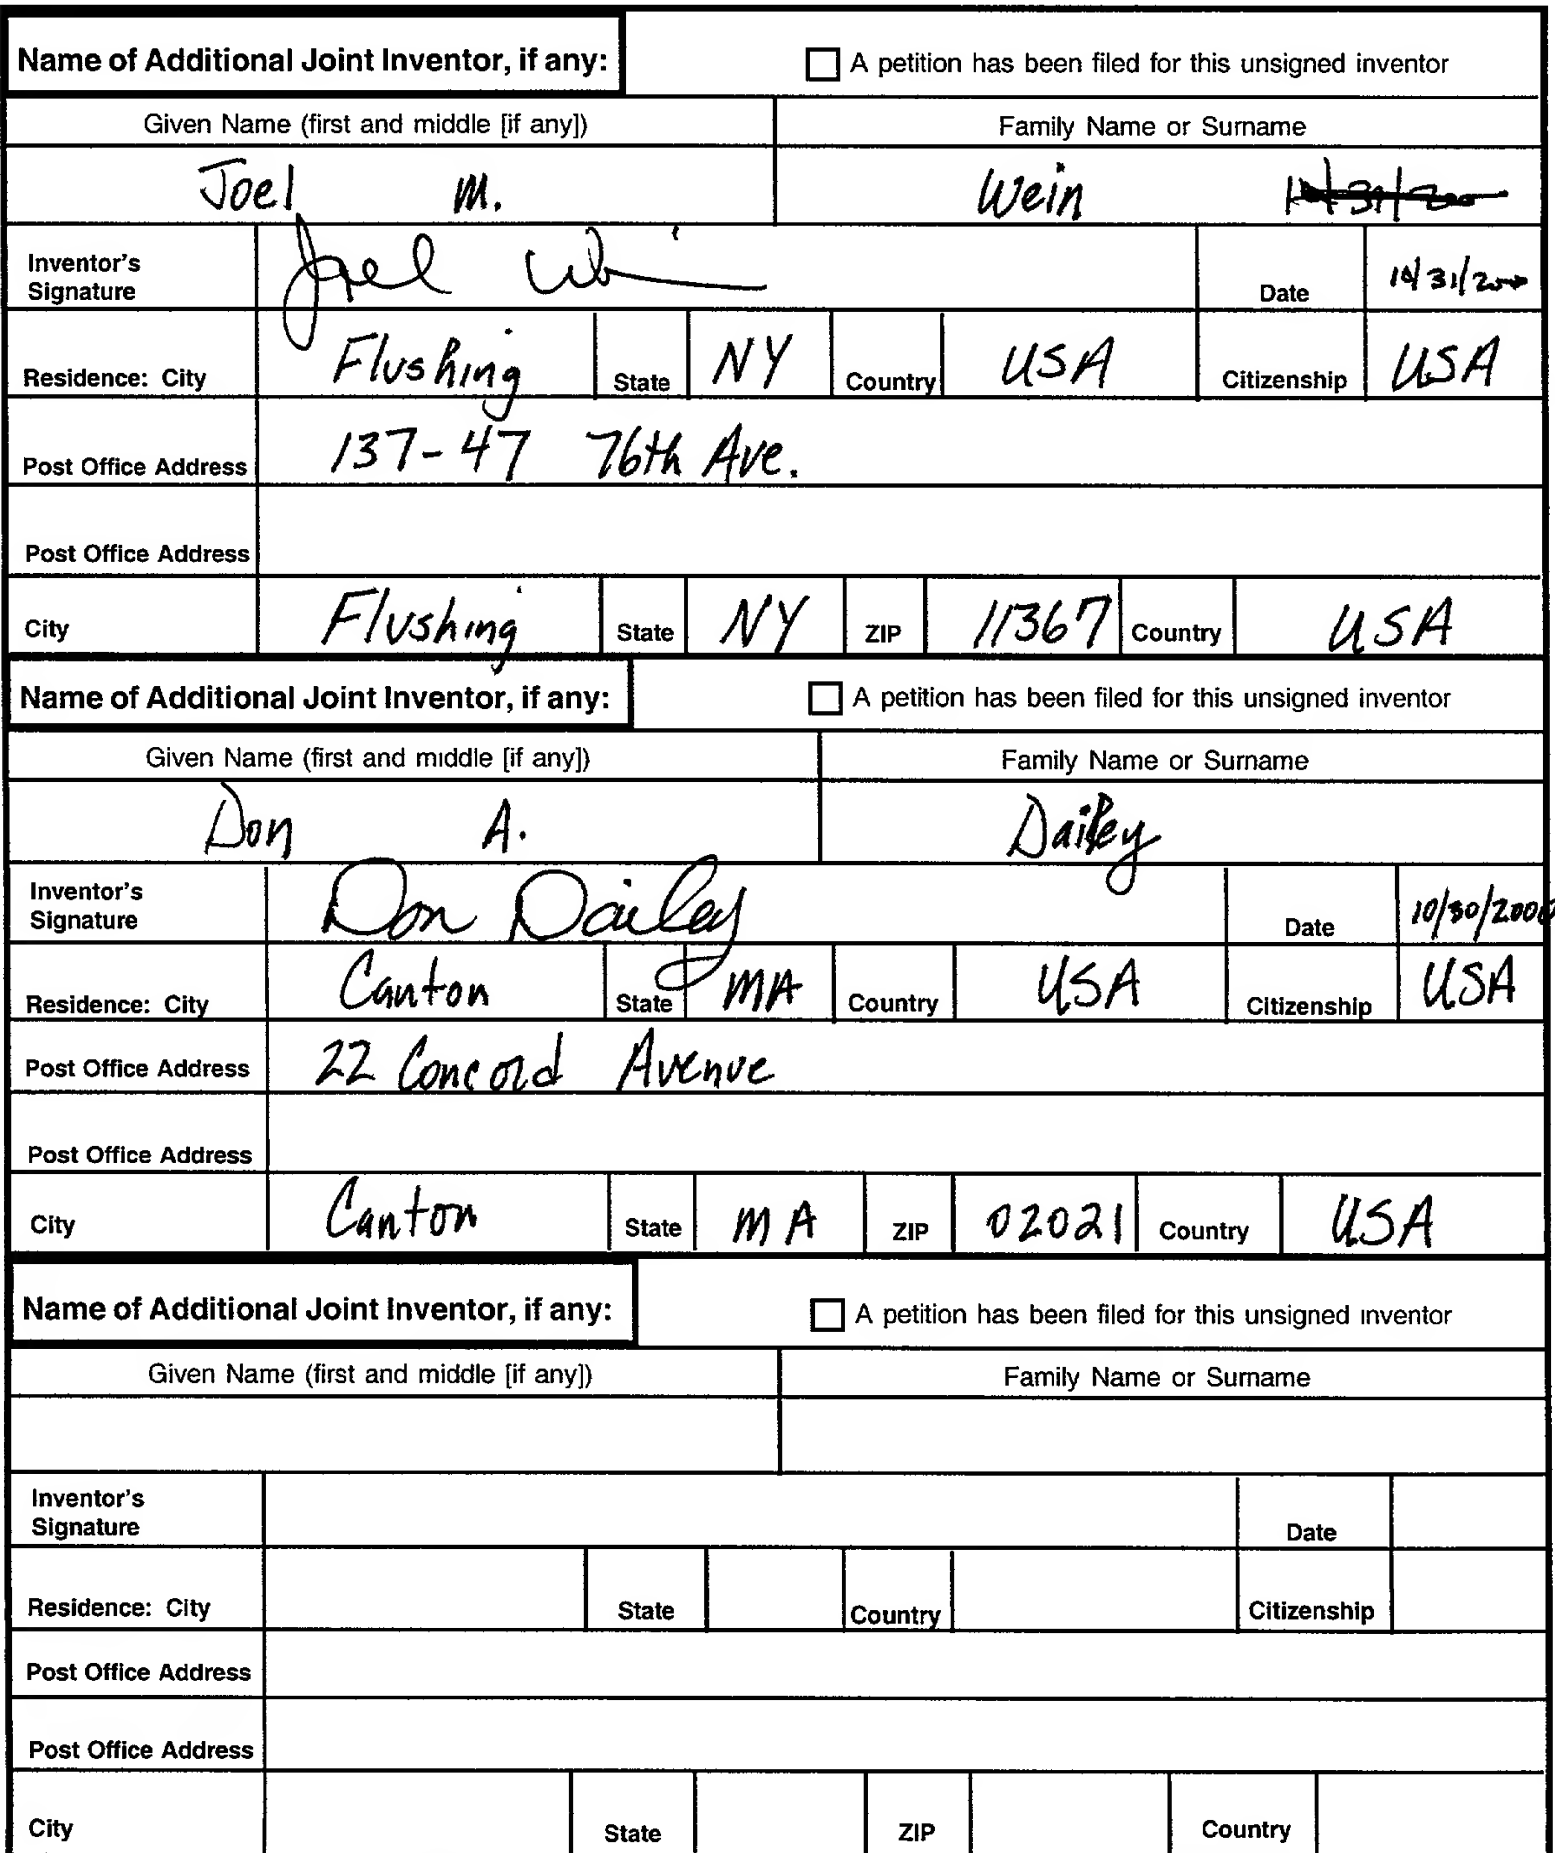 Name of Additional Joint Inventor, if any: A petition has been filed for this unsigned inventor
Given Name (first and middle [if any]) Family Name or Surname
Joel M. Wein 10/31/2000
Inventor's Signature Joel Wein Date 10/31/2000
Residence: City Flushing State NY Country USA Citizenship USA
Post Office Address 137-47 76th Ave.
Post Office Address
City Flushing State NY ZIP 11367 Country USA
Name of Additional Joint Inventor, if any: A petition has been filed for this unsigned inventor
Given Name (first and middle [if any]) Family Name or Surname
Don A. Dailey
Inventor's Signature Don Dailey Date 10/30/2000
Residence: City Canton State MA Country USA Citizenship USA
Post Office Address 22 Concord Avenue
Post Office Address
City Canton State MA ZIP 02021 Country USA
Name of Additional Joint Inventor, if any: A petition has been filed for this unsigned inventor
Given Name (first and middle [if any]) Family Name or Surname
Inventor's Signature Date
Residence: City State Country Citizenship
Post Office Address
Post Office Address
City State ZIP Country